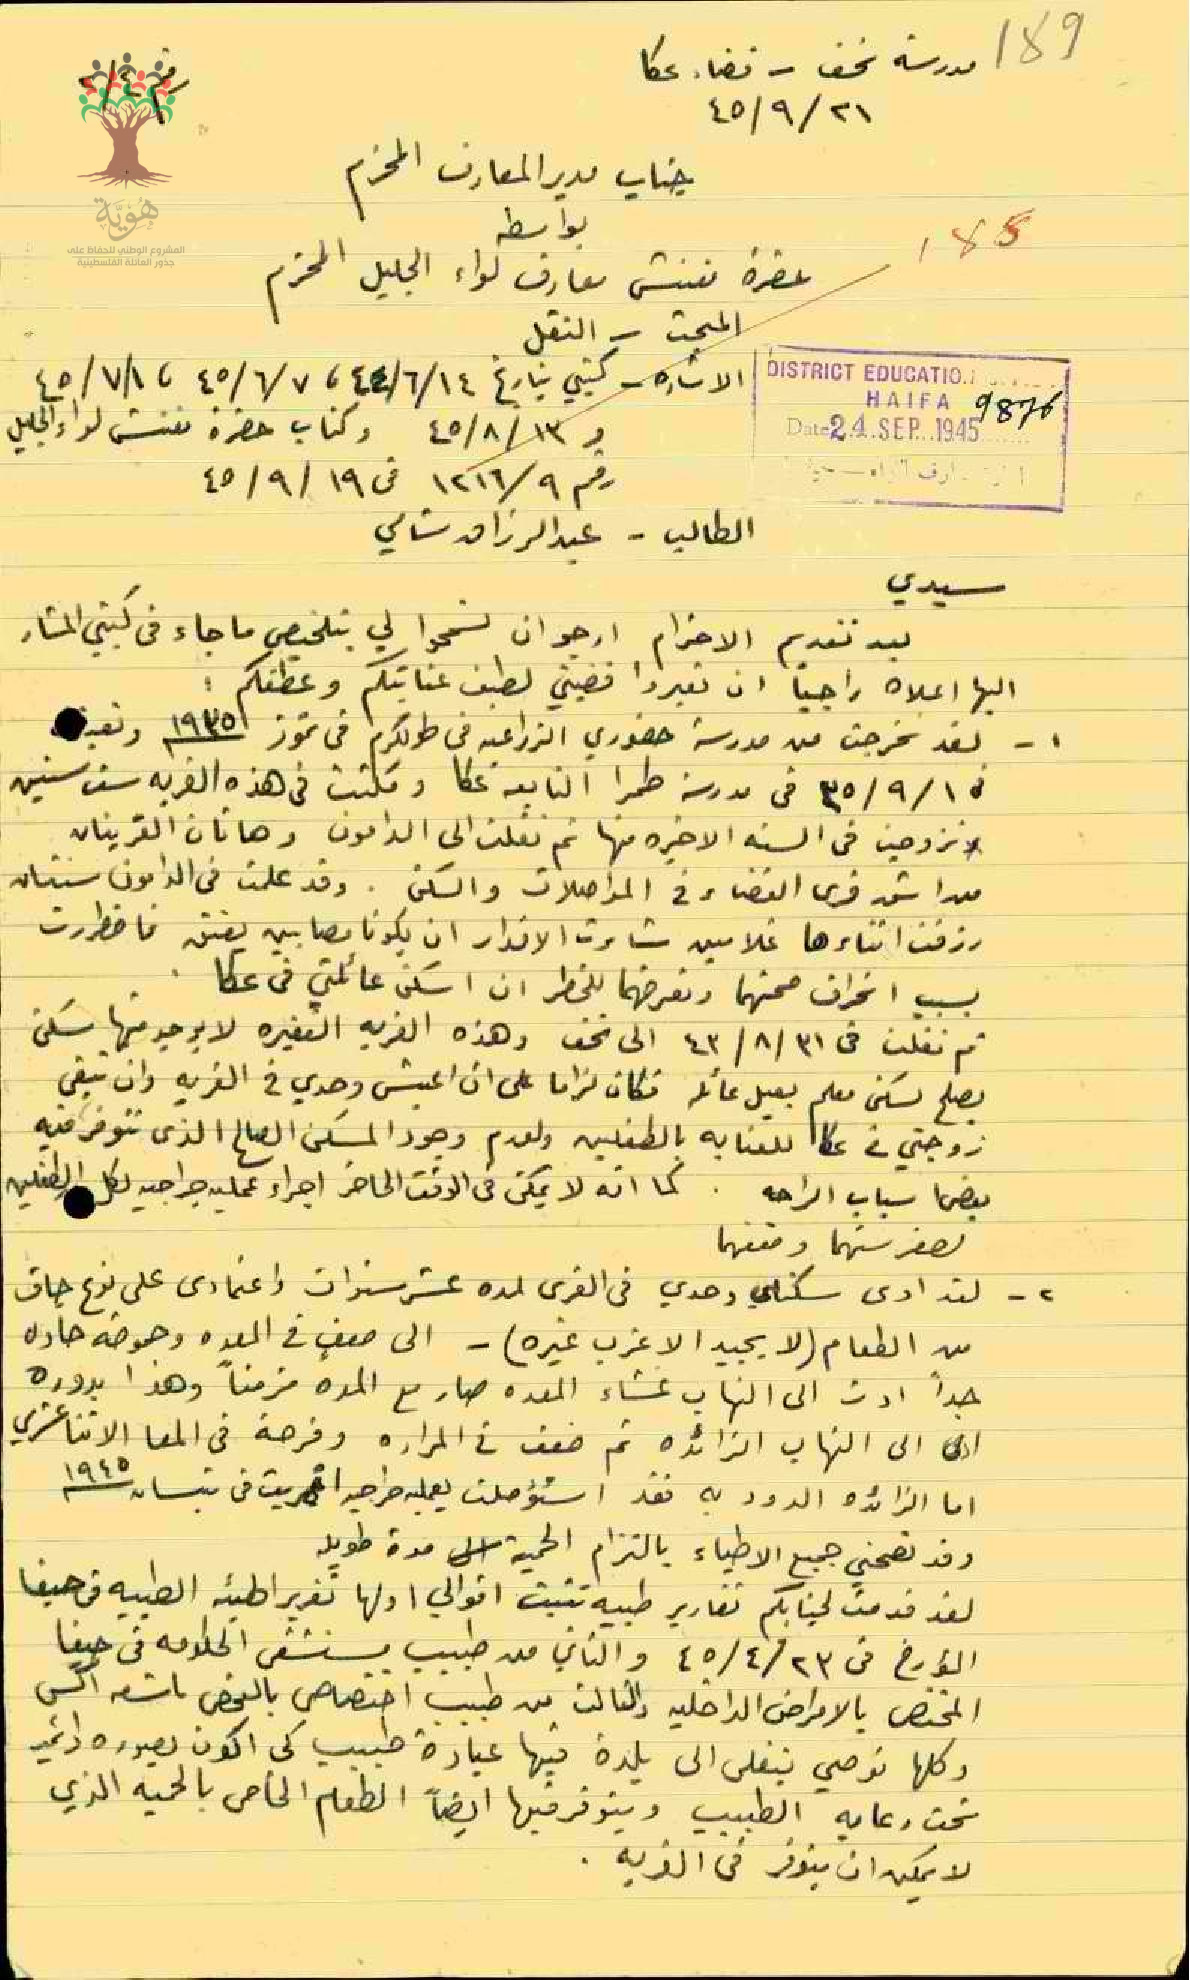 189
مدرسة نحف - قضاء عكا
٤٥/٩/٢١
جناب مدير المعارف المحترم
بواسطه
185
حضرة مفتش معارف لواء الجليل المحترم
المبحث - النقل
الاشاره - كتبي بتاريخ ٤٤/٦/١٤ ، ٤٥/٦/٧ ، ٤٥/٧/١
و ٤٥/٨/١٣ وكتاب حضرة مفتش لواء الجليل
رقم ١٢١٦/٩ في ٤٥/٩/١٩
DISTRICT EDUCATIO
HAIFA
9876
Date 24 SEP 1945
الطالب - عبد الرزاق شامي
سيدي
بعد تقديم الاحترام ارجو ان تسمحوا لي بتلخيص ما جاء في كتبي المشار
اليها اعلاه راجياً ان تعيروا قضيتي لطيف عنايتكم وعطفكم :
١ - لقد تخرجت من مدرسة خضوري الزراعيه في طولكرم في تموز ١٩٣٥
٣٥/٩/١ في مدرسة طمرا التابعه عكا ومكثت في هذه القريه ست سنين
تزوجت في السنه الاخيره منها ثم نقلت الى الدامون وهاتان القريتان
من اشد قرى القضاء في المواصلات والسكن . وقد عملت في الدامون سنتان
رزقت اثناءها غلامين شاءت الاقدار ان يكونا مصابين بفتق فاضطررت
بسبب انحراف صحتهما وتعرضهما للخطر ان اسكن عائلتي في عكا .
ثم نقلت في ٤٣/٨/٣١ الى نحف وهذه القريه الفقيره لا يوجد فيها سكن
يصلح لسكن معلم يعيل عائله فكان لزاما علي ان اعيش وحدي في القريه وان تبقى
زوجتي في عكا للعنايه بالطفلين ولعدم وجود المسكن الصالح الذي تتوفر فيه
بعض اسباب الراحه . كما انه لا يمكن في الوقت الحاضر اجراء عمليه جراحيه لكل الطفلين
لصغر سنهما وضعفهما
٢ - لقد ادى سكناي وحدي في القرى لمده عشر سنوات واعتمادي على نوع جاف
من الطعام (لا يجيد الاعزب غيره) - الى ضعف في المعده وحموضه حاده
جداً ادت الى التهاب غشاء المعده صار مع المده مزمناً وهذا بدوره
ادى الى التهاب الزائده ثم ضعف في المراره وقرحة في المعا الاثنا عشري
اما الزائده الدوديه فقد استؤصلت بعمليه جراحيه اجريت في نيسان ١٩٤٥
وقد نصحني جميع الاطباء بالتزام الحمية مدة طويله
لقد قدمت لجنابكم تقارير طبيه تثبت اقوالي اولها تقرير الهيئه الطبيه في حيفا
المؤرخ في ٤٥/٤/٢٣ والثاني من طبيب مستشفى الحكومه في حيفا
المختص بالامراض الداخليه والثالث من طبيب اختصاصي بالفحص باشعه اكس
وكلها توصي بنقلي الى بلدة فيها عيادة طبيب كي اكون بصوره دائميه
تحت رعايه الطبيب ويتوفر فيها ايضاً الطعام الخاص بالحميه الذي
لا يمكن ان يتوفر في القريه .
هُوِيَّة
المشروع الوطني للحفاظ على
جذور العائلة الفلسطينية